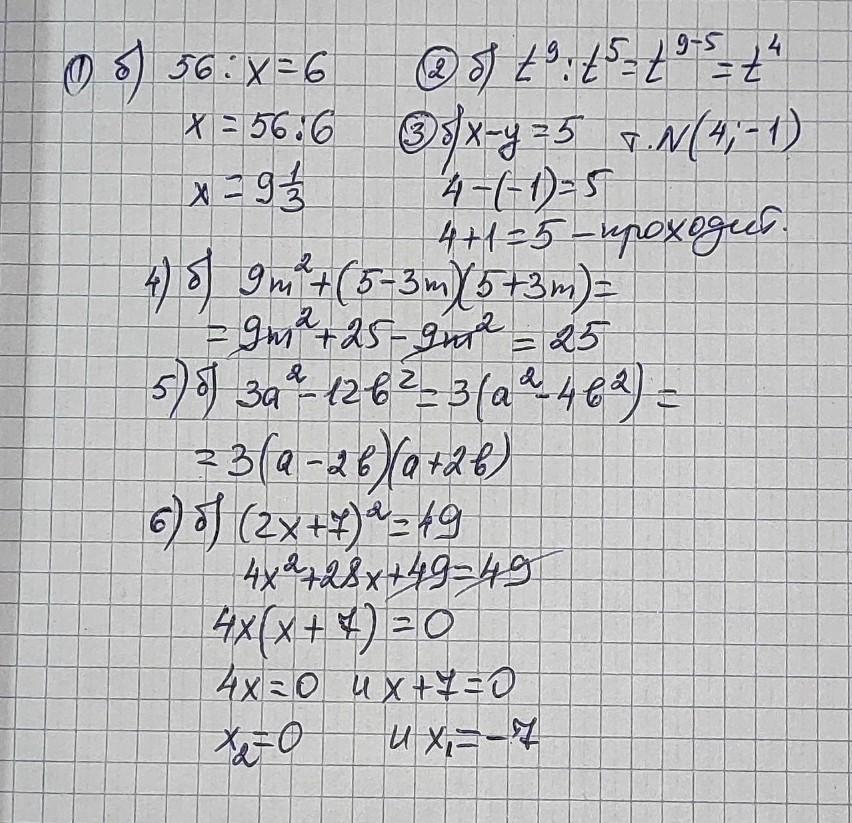 ① б) 56 : x = 6
x = 56 : 6
x = 9 1/3
② б) t⁹ : t⁵ = t⁹⁻⁵ = t⁴
③ б) x - y = 5 т. N(4; -1)
4 - (-1) = 5
4 + 1 = 5 - проходит.
4) б) 9m² + (5 - 3m)(5 + 3m) =
= 9m² + 25 - 9m² = 25
5) б) 3a² - 12b² = 3(a² - 4b²) =
= 3(a - 2b)(a + 2b)
6) б) (2x + 7)² = 49
4x² + 28x + 49 = 49
4x(x + 7) = 0
4x = 0 и x + 7 = 0
x₂ = 0 и x₁ = -7